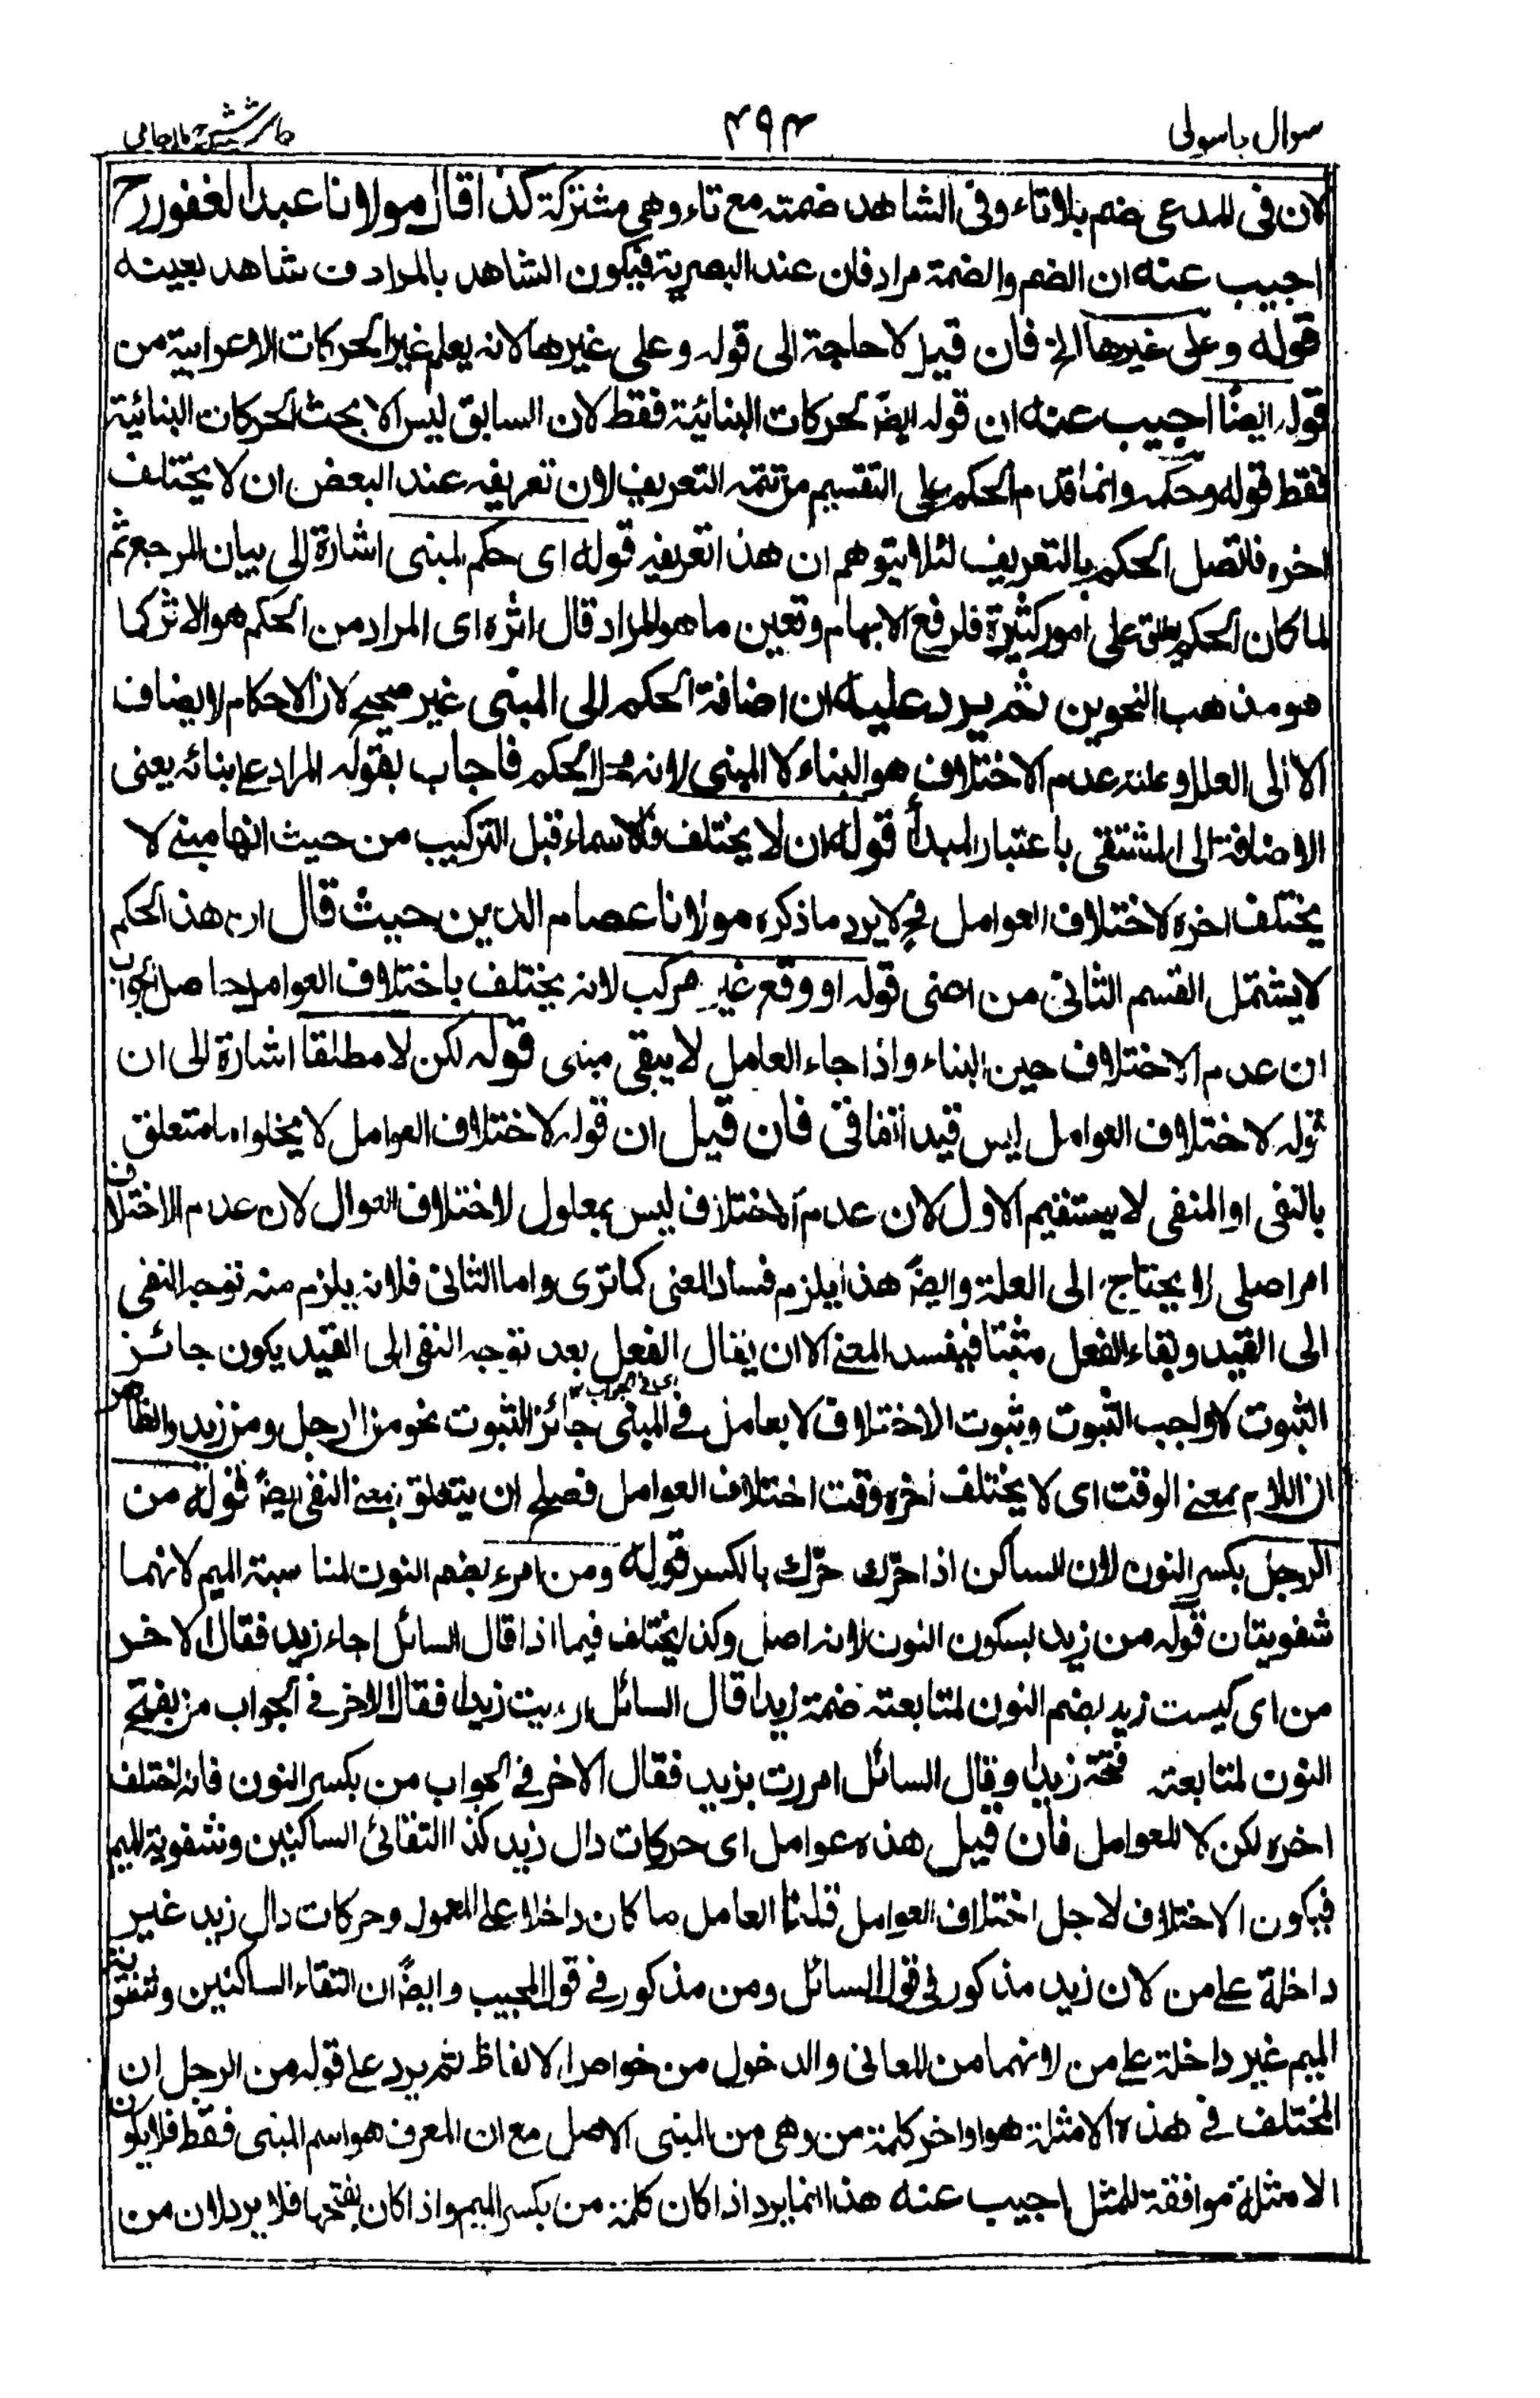 سوال باسولی ۴۹۴ حاشیة ملا جامی
لان فی المدعی ضم بلا تاء وفی الشاهد ضمته مع تاء وهی مشترکة کذا قال مولانا عبد الغفور رح
اجیب عنه ان الضم والضمة مرادفان عند البصریة فیکون الشاهد بالمرادف شاهد بعینه
قوله وعلی غیرها الخ فان قیل لا حاجة الی قوله وعلی غیرها لانه یعلم غیر الحرکات الاعرابیة من
قوله ایضًا اجیب عنه ان قوله ایضً لحرکات البنائیة فقط لان السابق لیس الا بحث الحرکات البنائیة
فقط قوله وحکمه وانما قدم الحکم علی التقسیم من تتمه التعریف لان تعریفه عند البعض ان لا یختلف
اخره فاتصل الحکم بالتعریف لئلا یتوهم ان هذا تعریفه قوله ای حکم المبنی اشارة الی بیان المرجع ثم
لما کان الحکم یطلق علی امور کثیرة فلرفع الابهام وتعین ما هو المراد قال اثره ای المراد من الحکم هو الاثر کما
هو مذهب النحوین ثم یرد علیه ان اضافة الحکم الی المبنی غیر صحیح لان الاحکام لا یضاف
الا الی العلل وعلته عدم الاختلاف هو البناء لا المبنی لانه محل الحکم فاجاب بقوله المراد علی بنائه یعنی
الاضافة الی المشتقی باعتبار المبدأ قوله ان لا یختلف فالاسماء قبل الترکیب من حیث انها مبنی لا
یختلف اخره لاختلاف العوامل فح لا یرد ما ذکره مولانا عصام الدین حیث قال ان هذا الحکم
لا یشتمل القسم الثانی من اعنی قوله او وقع غیر مرکب لانه یختلف باختلاف العوامل حاصل الجواب
ان عدم الاختلاف حین البناء واذا جاء العامل لا یبقی مبنی قوله لکن لا مطلقا اشارة الی ان
قوله لاختلاف العوامل لیس قید اتفاقی فان قیل ان قوله لاختلاف العوامل لا یخلوا اما متعلق
بالنفی او المنفی لا یستقیم الاول لان عدم الاختلاف لیس بمعلول لاختلاف العوال لان عدم الاختلاف
امر اصلی لا یحتاج الی العلة وایضً هذا یلزم فساد المعنی کما تری واما الثانی فلانه یلزم منه توجه النفی
الی القید وبقاء الفعل مثبتا فیفسد المعنی الا ان یقال الفعل بعد توجه النفی الی القید یکون جائز
الثبوت لا واجب الثبوت وثبوت الاختلاف لا بعامل فی المبنی جائز الثبوت نحو من الرجل ومن زید والظاهر
ان اللام بمعنی الوقت ای لا یختلف اخره وقت اختلاف العوامل فصلح ان یتعلق بمعنی النفی ایضً قوله من
الرجل بکسر النون لان الساکن اذا حرّك حرّك بالکسر قوله ومن امرء بضم النون لمناسبة المیم لانهما
شفویتان قوله من زید بسکون النون لانه اصل وکذا یختلف فیما اذا قال السائل اجاء زید فقال الاخر
من ای کیست زید بضم النون لمتابعته ضمة زید اقال السائل ارءیت زیدا فقال الاخر فی الجواب من بفتح
النون لمتابعته فتحة زیدا وقال السائل امررت بزید فقال الاخر فی الجواب من بکسر النون فانه اختلف
اخره لکن لا للعوامل فان قیل هذه عوامل ای حرکات دال زید کذا التقائی الساکنین وشفویة المیم
فیکون الاختلاف لاجل اختلاف العوامل قلنا العامل ما کان داخلا علی المعمول وحرکات دال زید غیر
داخلة علی من لان زید مذکور فی قول السائل ومن مذکور فی قول المجیب وایضً ان التقاء الساکنین وشفویة
المیم غیر داخلة علی من لانهما من المعانی والدخول من خواص الالفاظ ثم یرد علی قوله من الرجل ان
المختلف فی هذه الامثلة هو اواخر کلمة من وهی من المبنی الاصل مع ان المعرف هو اسم المبنی فقط فلا یکون
الامثلة موافقة للمثل اجیب عنه هذا انما یرد اذا کان کلمة من بکسر المیم واذا کان بفتحها فلا یرد لان من